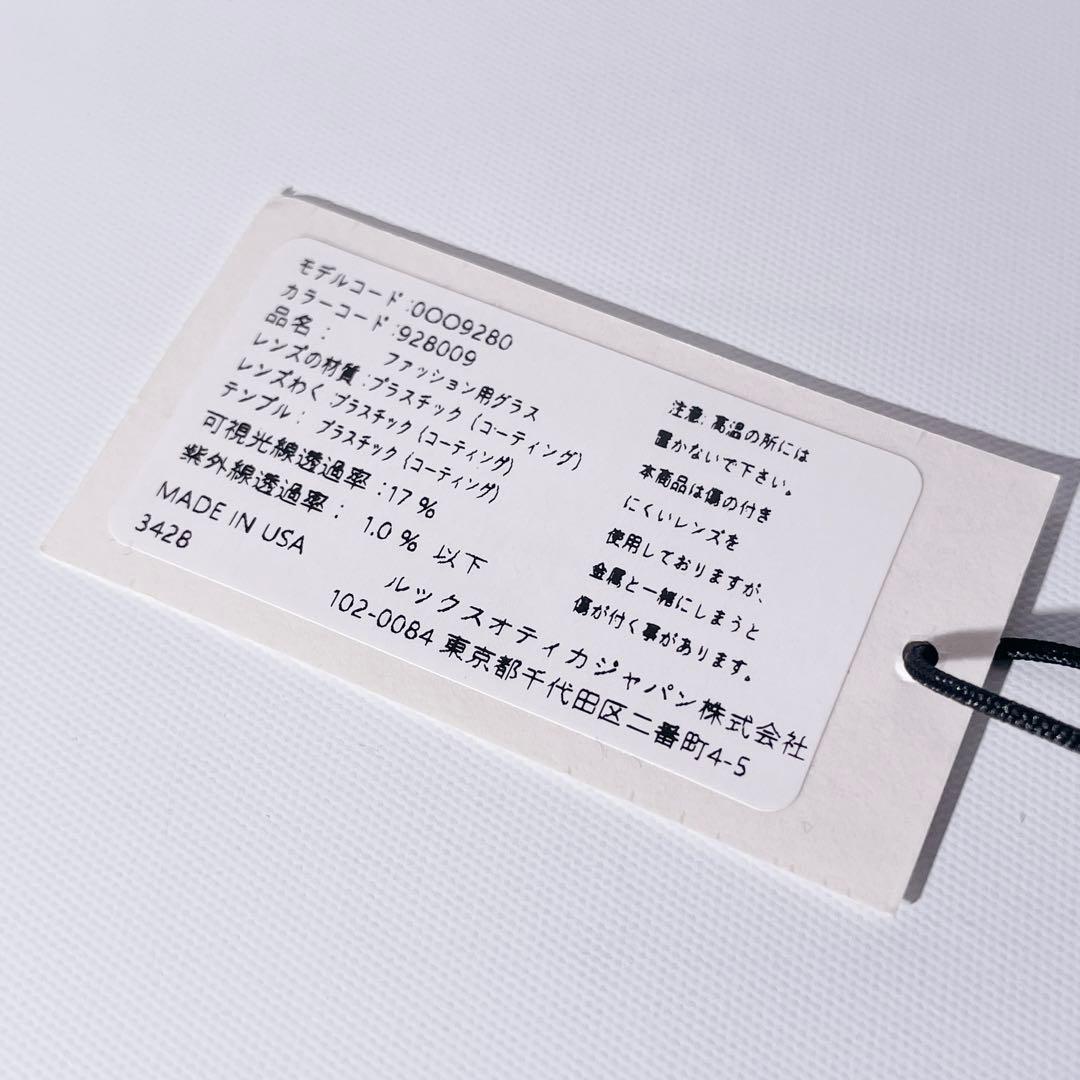 モデルコード:0OO9280
カラーコード:928009
品名: ファッション用グラス
レンズの材質:プラスチック (コーティング)
レンズわく プラスチック (コーティング)
テンプル: プラスチック (コーティング)
可視光線透過率:17%
紫外線透過率: 1.0% 以下
MADE IN USA
3428
注意:高温の所には
置かないで下さい。
本商品は傷の付き
にくいレンズを
使用しておりますが、
金属と一緒にしまうと
傷が付く事があります。
ルックスオティカジャパン株式会社
102-0084 東京都千代田区二番町4-5